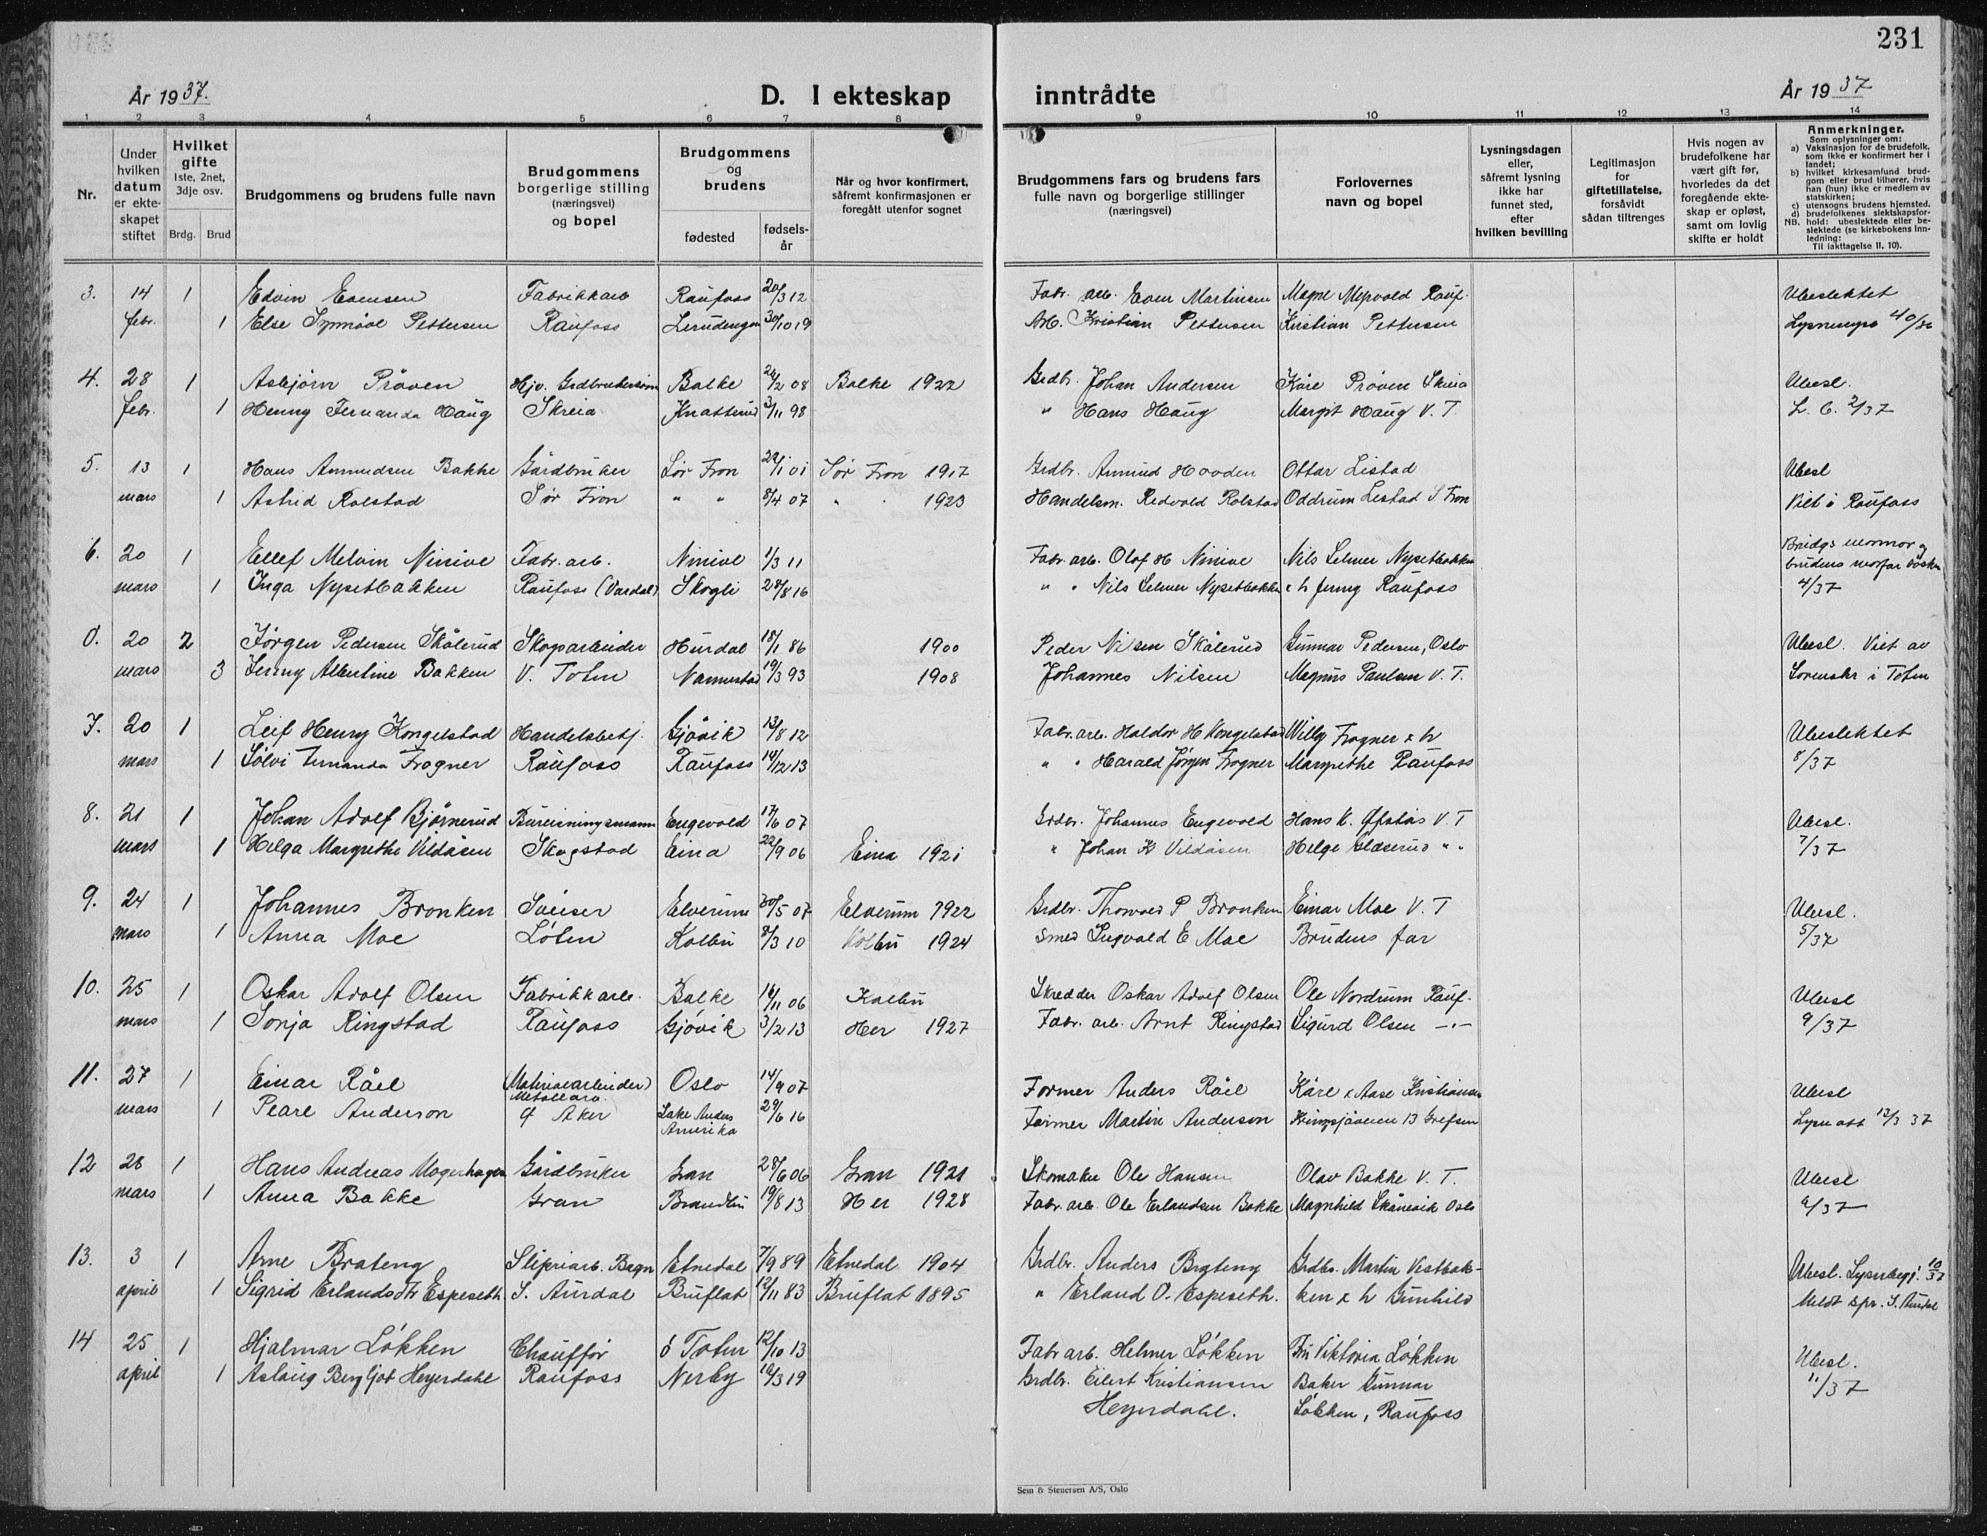 231
År 1937.
D. I ekteskap inntrådte
År 1937
1 2 3 4 5 6 7 8 9 10 11 12 13 14
Nr.
Under hvilken datum er ekteskapet stiftet
Hvilket gifte 1ste, 2net, 3dje osv.
Brdg. Brud
Brudgommens og brudens fulle navn
Brudgommens borgerlige stilling (næringsvei) og bopel
Brudgommens og brudens
fødested
fødselsår
Når og hvor konfirmert, såfremt konfirmasjonen er foregått utenfor sognet
Brudgommens fars og brudens fars fulle navn og borgerlige stillinger (næringsvei)
Forlovernes navn og bopel
Lysningsdagen eller, såfremt lysning ikke har funnet sted, efter hvilken bevilling
Legitimasjon for giftetillatelse, forsåvidt sådan tiltrenges
Hvis nogen av brudefolkene har vært gift før, hvorledes da det foregående ekteskap er opløst, samt om lovlig skifte er holdt
Anmerkninger.
Som oplysninger om:
a) Vaksinasjon for de brudefolk, som ikke er konfirmert her i landet;
b) hvilket kirkesamfund brudgom eller brud tilhører, hvis han (hun) ikke er medlem av statskirken;
c) utensogns brudens hjemsted.
d) brudefolkenes slektskapsforhold: ubeslektede eller beslektede (se kirkebokens Innledning:
NB. Til iakttagelse II. 10).
3. 14 1 Edvin Evensen Fabrikkarb Raufoss 20/3 12 Fabr. arb. Even Martinsen Magne Ubeslektet
febr. 1 Else Synnøve Pettersen Raufoss 30/10 19 Arb. Kristian Pettersen Kristian Pettersen
4. 28 1 Asbjørn Prøven Balke 08 Balke 1922 Grdbr. Johan Andersen Kåre Prøven Skreia Ubesl.
febr. 1 Henny Fernanda Haug Skreia 3/11 98 " Hans Haug Margit Haug V. T. 2/37
5. 13 1 Hans Amundsen Bakke Gårdbruker Sør Fron 01 Sør Fron 1917 Grdbr. Amund Ottar Listad Ubesl
mars 1 Astrid Rolstad Sør Fron " " 8/4 07 " . 1923 Handelsm. Redvald Rolstad Oddrun Listad S Fron Viet i Raufoss
6. 20 1 Ellef Melvin Ninive Fabr. arb. Ninive 1/3 11 Fabr. arb. Olaf H Ninive Nils Selmer Nysetbakken Brudgs mormor og
mars 1 Inga Nysetbakken Raufoss (Vardal) Skogli 28/8 16 " " Nils Selmer Nysetbakken Jenny Raufoss brudens morfar
4/37
0. 20 2 Jørgen Pedersen Skålerud Skogsarbeider Hurdal 18/1 86 1900 Peder Nilsen Skålerud Gunnar Pedersen, Oslo Ubesl. Viet av
mars 3 Jenny Albertine Bakken V. Toten Nannestad 19/3 93 1908 Johannes Nilsen Magnus Paulsen V. T. Sorenskr i Toten
7. 20 1 Leif Henry Kongelstad Handelsbetj. Gjøvik 13/8 12 Fabr. arb. Haldor H Kongelstad Willy Frogner x h Ubeslektet
mars 1 Sølvi Fernanda Frogner Raufoss Raufoss 14/12 13 " " Harald Jørgen Frogner Margrethe Raufoss 8/37
8. 21 1 Johan Adolf Bjørnerud Bureisningsmann Engevold 17/6 07 Grdbr. Johannes Engevold Hans K. V. T Ubesl.
mars 1 Helga Margrethe Vildåsen Skogstad Eina 22/9 06 Eina 1921 " Johan K Vildåsen Helge Glæserud " " 7/37
9. 24 1 Johannes Bronken Sveiser Elverum 30/5 07 Elverum 1922 Grdbr. Thorvald P Bronken Einar Moe V. T Ubesl.
mars 1 Anna Moe Løten Kolbu 8/3 10 Kolbu 1924 Smed Ingvald E Moe Brudens far 5/37
10. 25 1 Oskar Adolf Olsen Fabrikkarb. Balke 16/11 06 Kolbu Skredder Oskar Adolf Olsen Ole Nordrum Rauf- Ubesl
mars 1 Sonja Ringstad Raufoss Gjøvik 3/2 13 Her 1927 Fabr. arb. Arnt Ringstad Sigurd Olsen —"— 9/37
11. 27 1 Einar Råel (Materialarbeider) Oslo 14/9 07 Former Anders Råel Kåre x Aase Kristiansen Ubesl
Metallarb.
mars 1 Pearl Anderson Aker Lake Andes 29/6 16 Farmer Martin Anderson 13 Grefsen Lysn att 12/3 37
Amerika
12 28 1 Hans Andreas Mogerhagen Gårdbruker Gran 28/6 06 Gran 1921 Skomaker Ole Hansen Olav Bakke V. T. Ubesl
mars 1 Anna Bakke Gran Brandbu 19/8 13 Her 1928 Fabr. arb. Ole Erlandsen Bakke Magnhild Skånevik Oslo 6/37
13. 3 1 Arne Brateng Sliperiarb. Bagn Etnedal 7/9 89 Etnedal 1904 Grdbr. Anders Brateng Grdbr. Martin Vestbak- Ubesl. Lysnbegj. 10/37
april 1 Sigrid Erlandsdtr Espeseth S. Aurdal Bruflat 12/11 83 Bruflat 1895 " Erland O. Espeseth. ken x h Gunhild Meldt spr. S. Aurdal
14 25 1 Hjalmar Løkken Chauffør Ø Toten 12/10 13 Fabr arb. Helmer Løkken Fru Viktoria Løkken Ubesl.
april 1 Aslaug Bergljot Heyerdahl Raufoss Nerby 16/3 19 Grdbr. Eilert Kristiansen Baker Gunnar 11/37
Heyerdahl. Løkken, Raufoss
Sem & Stenersen A/S, Oslo